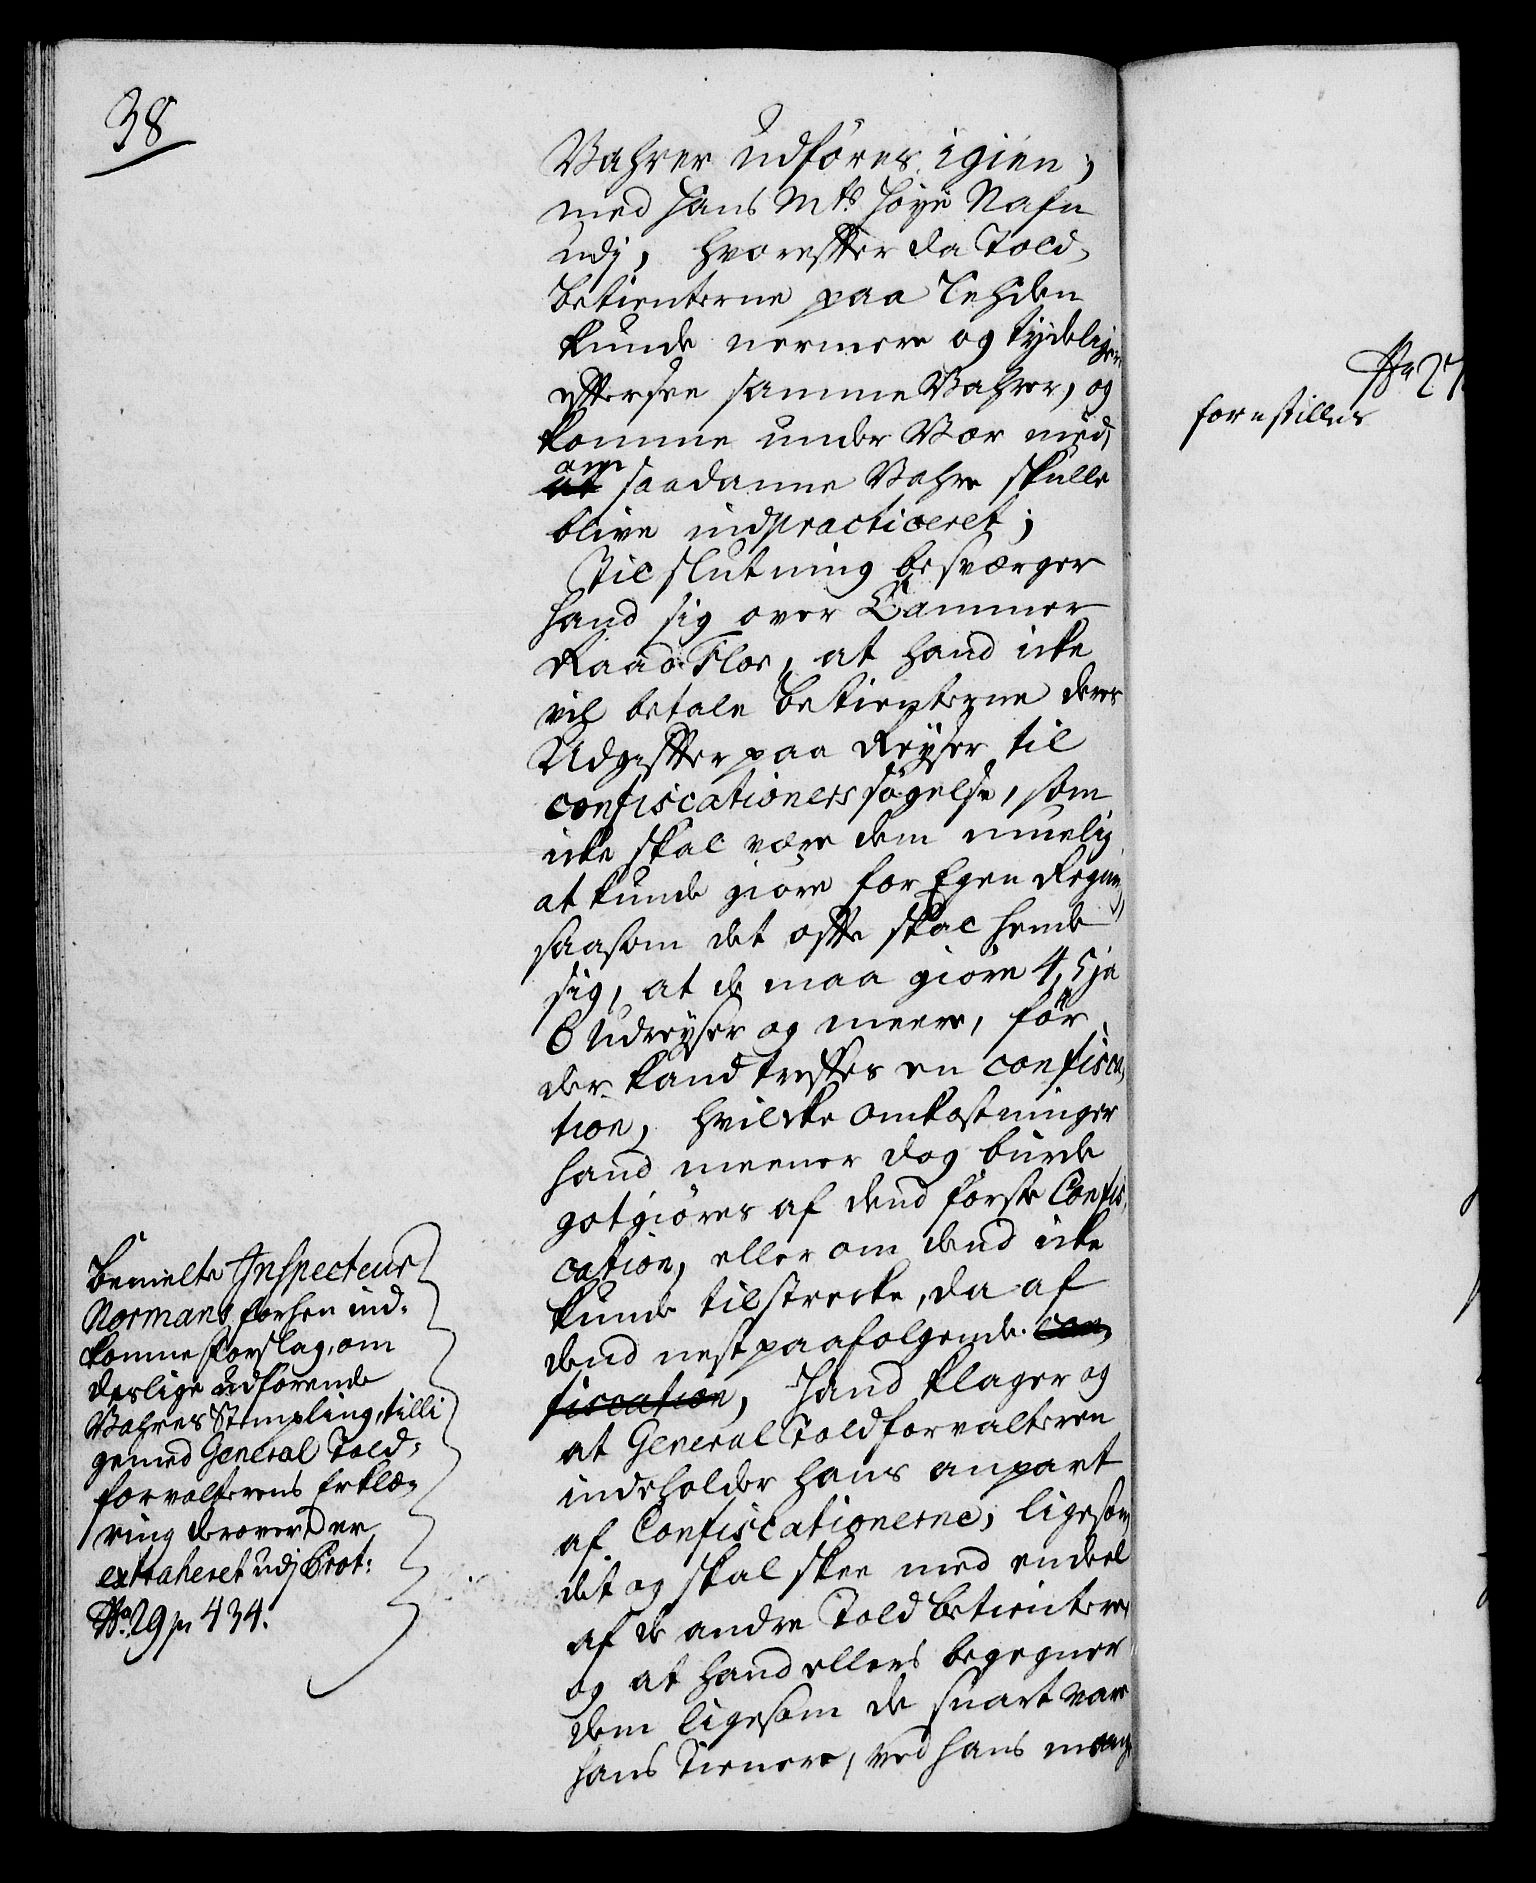 38
Vahrer udföres igien,
med Hans Mts höye Nafn
udj, hvorefter da Told-
betienterne paa Tehden
kunde nermere og tydeliger
eftersee samme Vahrer, og
komme under Vær med,
om
at saadanne Vahre skulle
blive indpracticeret;
Til slutning besværger
hand sig over Cammer
Raad Flor, at hand icke
vil betale betienterne deres
Udgifter paa Reyser til
confiscationers søgelse, som
icke skal være dem muelig
at kunde giöre for Egen Regning,
saasom det ofte skal hende
sig, at de maa giöre 4, 5 ja
6 udreyser og meere, för
der kand treffes en confisca-
tion, hvilcke omkostninger
hand meener dog burde
gotgiöres af dend förste Confis-
cation, eller om dend icke
kunde tilstrecke, da af
dend nestpaafölgende con-
fiscation, Hand klager og
at General Toldforvalteren
indeholder hans anpart
af Confiscationerne, ligesom
det og skal skee med endeel
af de andre Told betientere,
og at hand ellers begegner
dem ligesom de snart vare
hans Tienere, ved hans mang
bemelte Inspecteur
Normans forhen ind-
komne forslag, om
deslige udförende
Vahres Stempling, tilli
gemed General Told-
forvalterens Erklæ-
ring derover er
extraheret udj Prot:
No. 29 p 434.
No 27
forestilles